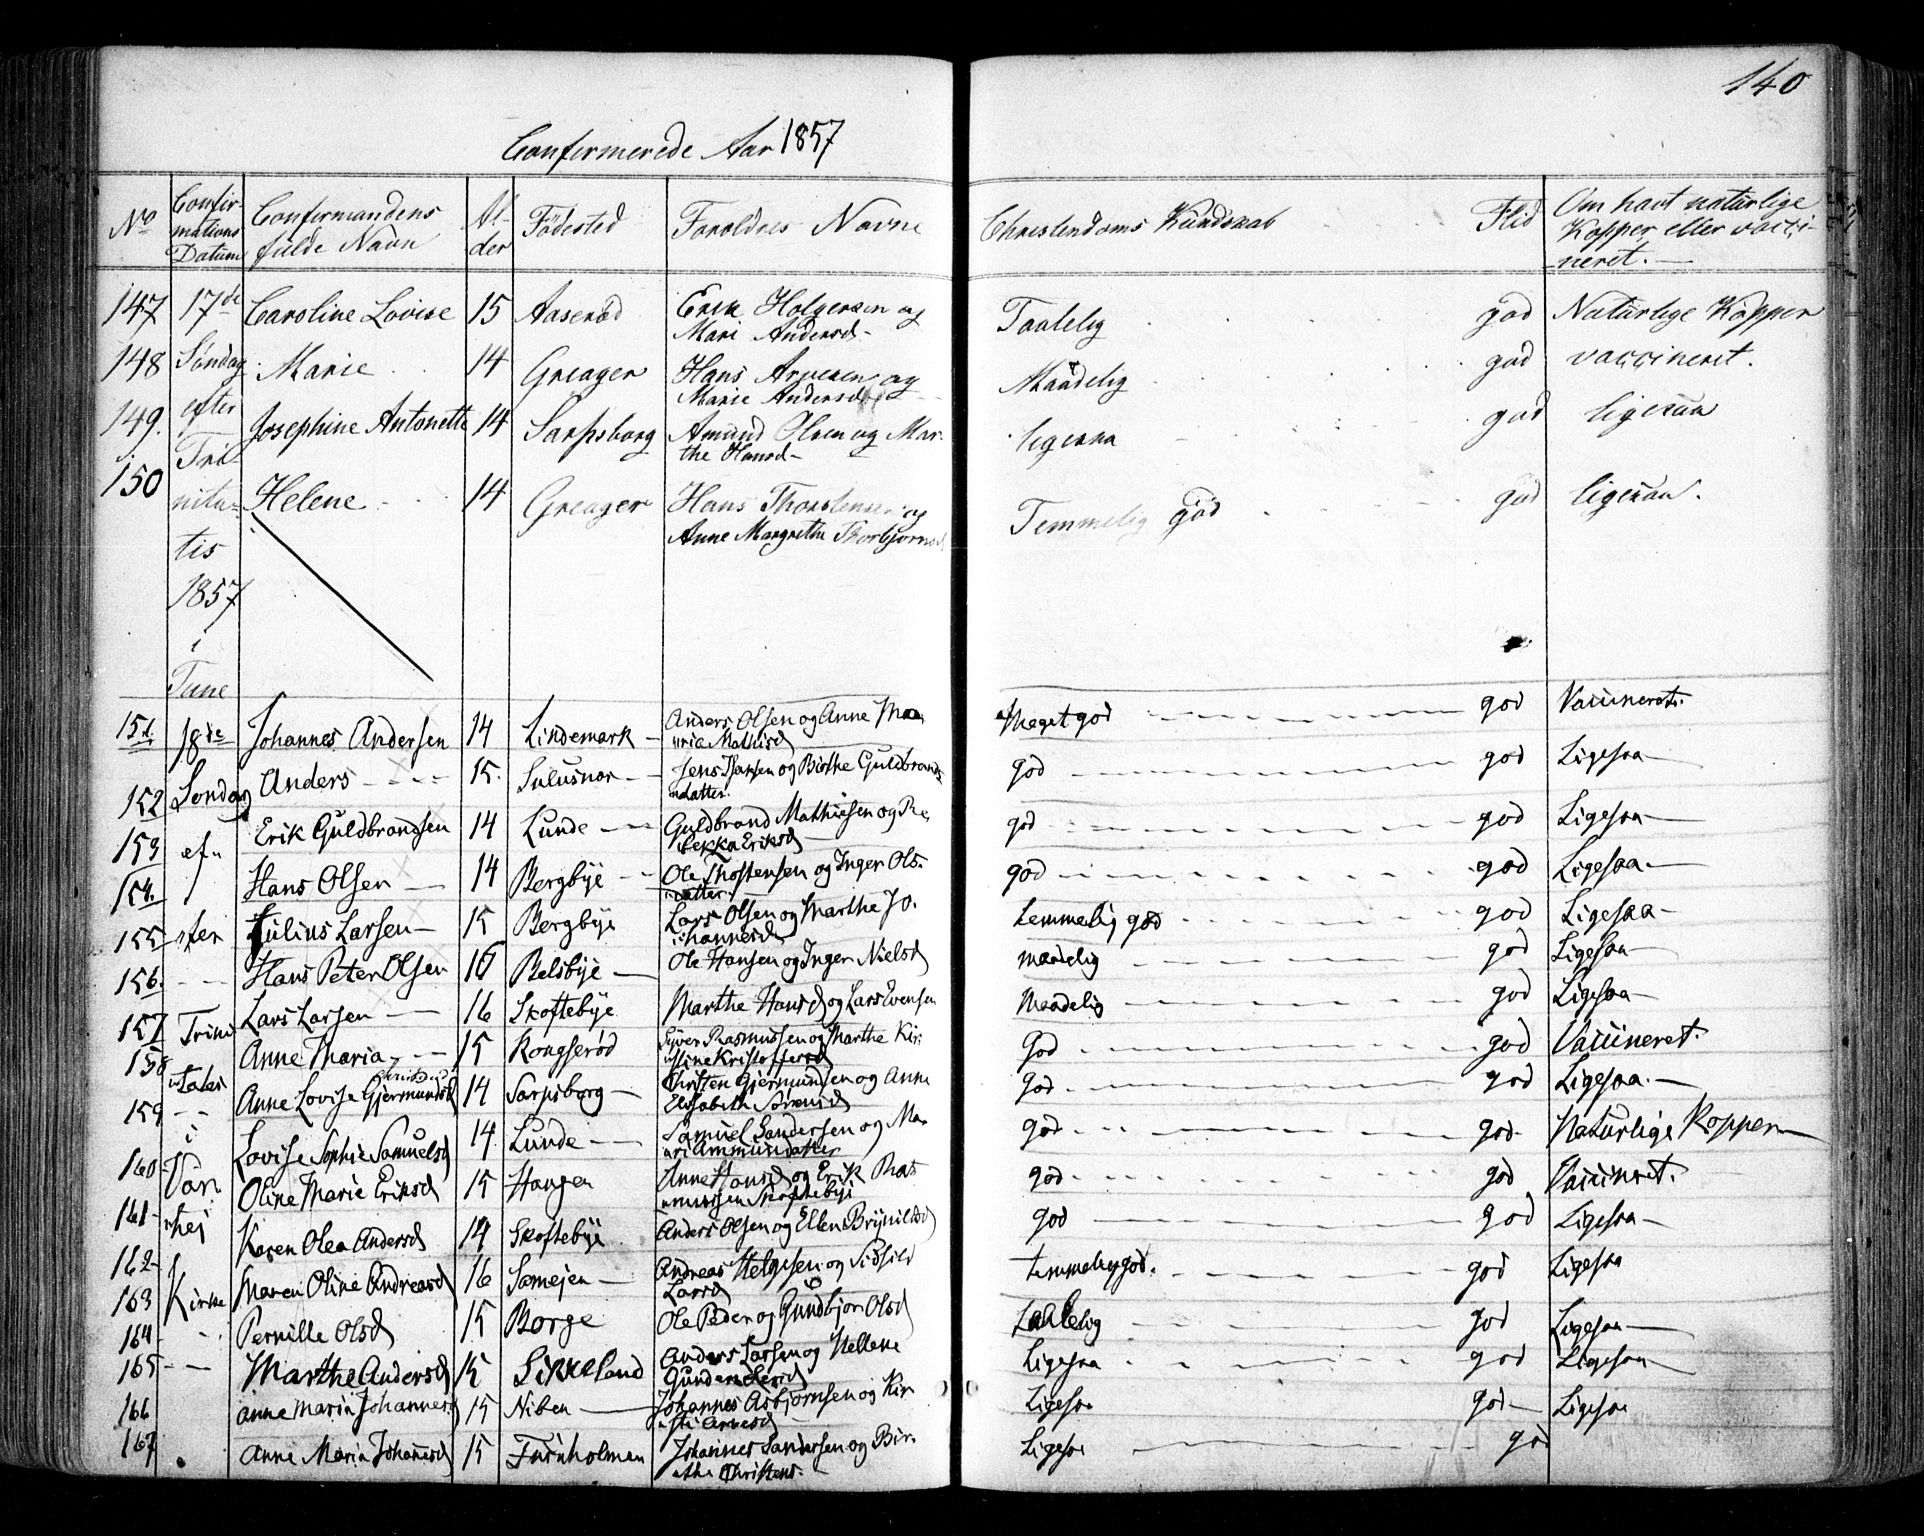 140
Confirmerede Aar 1857
No Confirmations Datum Confirmandens fulde Navn Alder Födested Foreldres Navne Christendoms Kundskab Flid Om havt naturlige Kopper eller vacci-
neret.
147 17de Caroline Lovise 15 Aaseröd Erik Holgersen og Taalelig god Naturlige Kopper
Mari Andersd
148 Søndag Marie 14 Greager Hans Arvesen og Maadelig god vaccineret.
Marie Andersd
149. efter Josephine Antonette 14 Sarpsborg Amund Olsen og Mar- ligesaa god ligesaa
the Hansd
150 Tri- Helene 14 Greager Hans Thorstensen og Temmelig god god ligesaa.
nita- Anne Margrethe
tis
1857
i
Tune
151. 18de Johannes Andersen 14 Lindemark Anders Olsen og Anne Ma Meget god god Vaccineret.
ria Mathisd
152 Søndag Anders 15. Sulusnor Jens og Birthe Guldbrands god god Ligesaa
datter
153 ef Erik Guldbrandsen 14 Lunde Guldbrand Mathiesen og Re god god Ligesaa
bekka Eriksd
154. Hans Olsen 14 Bergbye Ole Thostensen og Inger Ols- god god Ligesaa.
datter
155 ter Julius Larsen 15 Bergbye Lars Olsen og Marthe Jo- temmelig god god Ligesaa
hannesd
156. Hans Peter Olsen 16 Belsbye Ole Hansen og Inger Nielsd maadelig god Ligesaa
157 Trini Lars Larsen 16 Skoftebye Marthe Hansd og Lars Evensen Maadelig god Ligesaa
158 Anne Maria 15 Kongserød Syver Rasmussen og Marthe Kir- God god Vaccineret.
stine Kristoffersd
159 Anne Lovise Gjermundsd 14 Sarpsborg Christen Gjermundsen og Anne God god Ligesaa.
Elisabeth Sørensd
160 i Lovise Sophie Samuelsd 14 Lunde Samuel Sandersen og Ma- god god Naturlige Kopper
ari Ammundatter
161 Var Oline Marie Eriksd 15 Haugen Anne Hansd og Erik Ras god god Vaccineret.
mussen Skoftebye
162 tej Karen Olea Andersd 14 Skoftebye Anders Olsen og Ellen Brynildsd god god Ligesaa
163 Kirke Maren Oline Andreasd 16 Somejen Andreas Helgesen og Sidsild temmelig god. god Ligesaa
Larsd
164 Pernille Olsd 15 Borge Ole Peder og Gundbjor Olsd taalelig god Ligesaa
165 Marthe Andersd 15 Likkeland Anders Larsen og Hellene Ligesaa god Ligesaa
166 Anne Maria Johannesd 15 Niben Johannes Asbjørnsen og Kir Ligesaa god Ligesaa
sti Arnesd
167 Anne Maria Johannesd 15 Furuholmen Johannes Sandersen og Bir- Ligesaa god
the Christens.